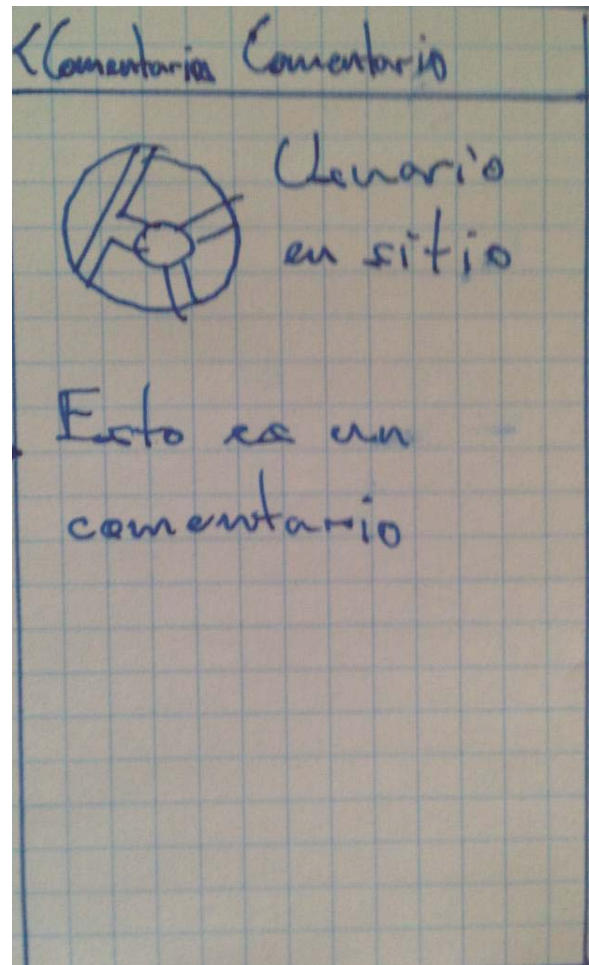 < Comentarios Comentario
Usuario
en sitio
Esto es un
comentario